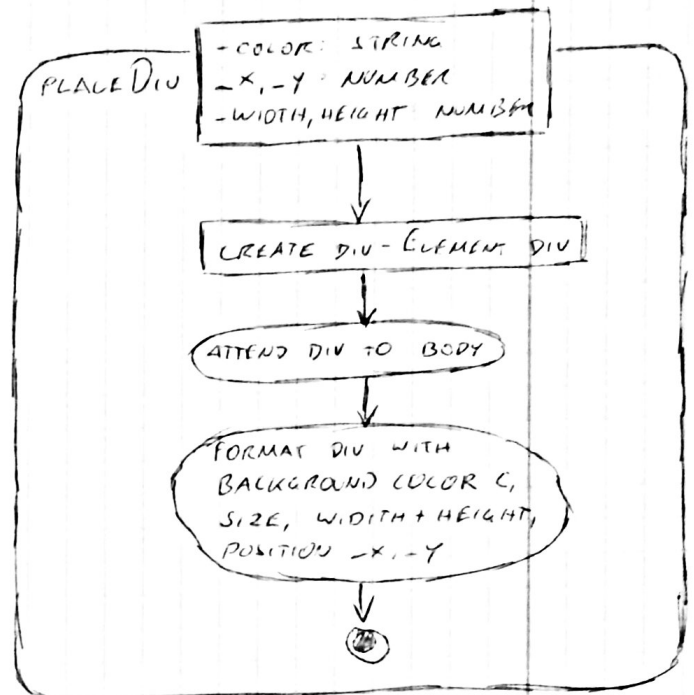 PLACEDIV
-COLOR: STRING
_X, -Y NUMBER
-WIDTH, HEIGHT NUMBER
CREATE DIV-ELEMENT DIV
ATTEND DIV TO BODY
FORMAT DIV WITH
BACKGROUND COLOR C,
SIZE, WIDITH + HEIGHT,
POSITION -X, -Y